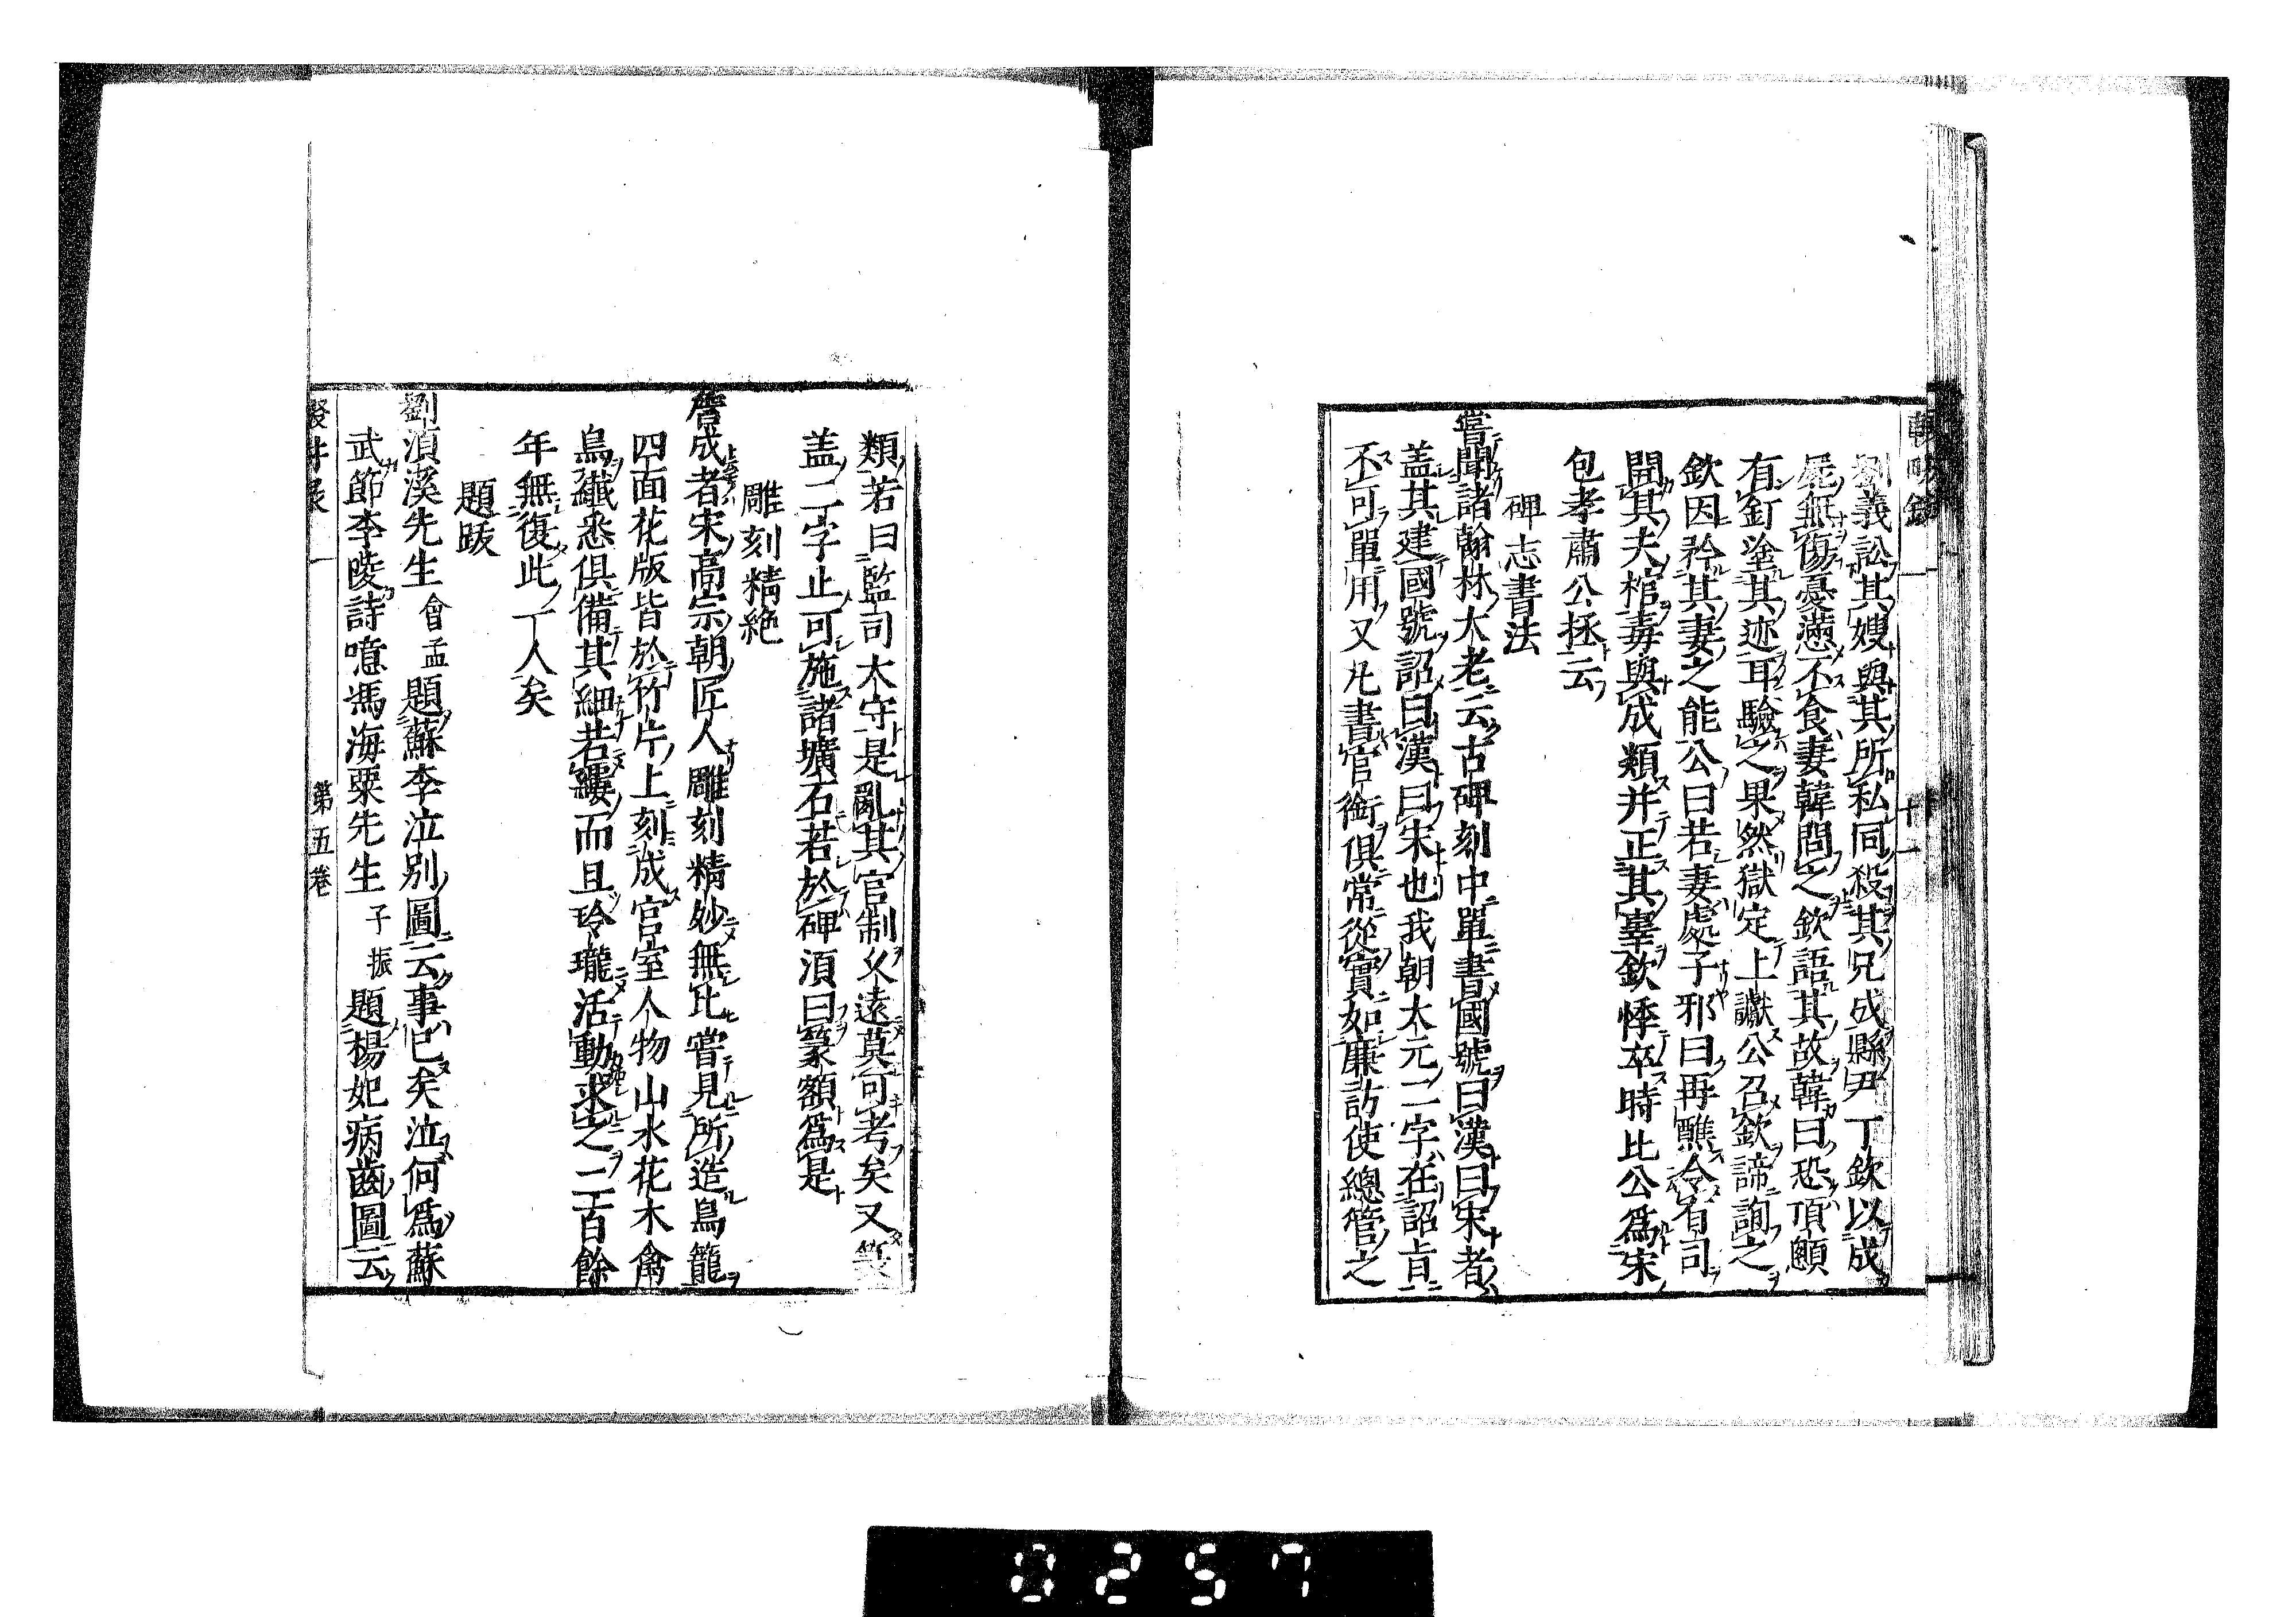 劉義訟其嫂與其所私同殺其兄成縣尹丁欽以成
屍無傷憂懣不食妻韓問之欽語其故韓曰恐頂顖
有釘塗其迹耳驗之果然獄定上讞公召欽諦詢之
欽因矜其妻之能公曰若妻處子邪曰再醮令有司
開其夫棺毒與成類并正其辜欽悸卒時比公爲宋
包孝肅公拯云
碑志書法
嘗聞諸翰林大老云古碑刻中單書國號曰漢曰宋者
盖其建國號詔曰漢曰宋也我朝大元二字在詔旨
不可單用又凢書官銜俱常從實如廉訪使總管之
類若曰監司太守是亂其官制久遠莫可考矣又篆
盖二字止可施諸壙石若於碑湏曰篆額爲是
雕刻精絶
詹成者宋高宗朝匠人雕刻精妙無比嘗見所造鳥籠
四面花版皆於竹片上刻成宮室人物山水花木禽
鳥纖悉俱備其細若縷而且玲瓏活動求之二百餘
年無復此一人矣
題跋
劉湏溪先生 會孟 題蘇李泣別圖云事已矣泣何爲蘇
武節李陵詩噫馮海粟先生 子振 題楊妃病齒圖云
第五巻